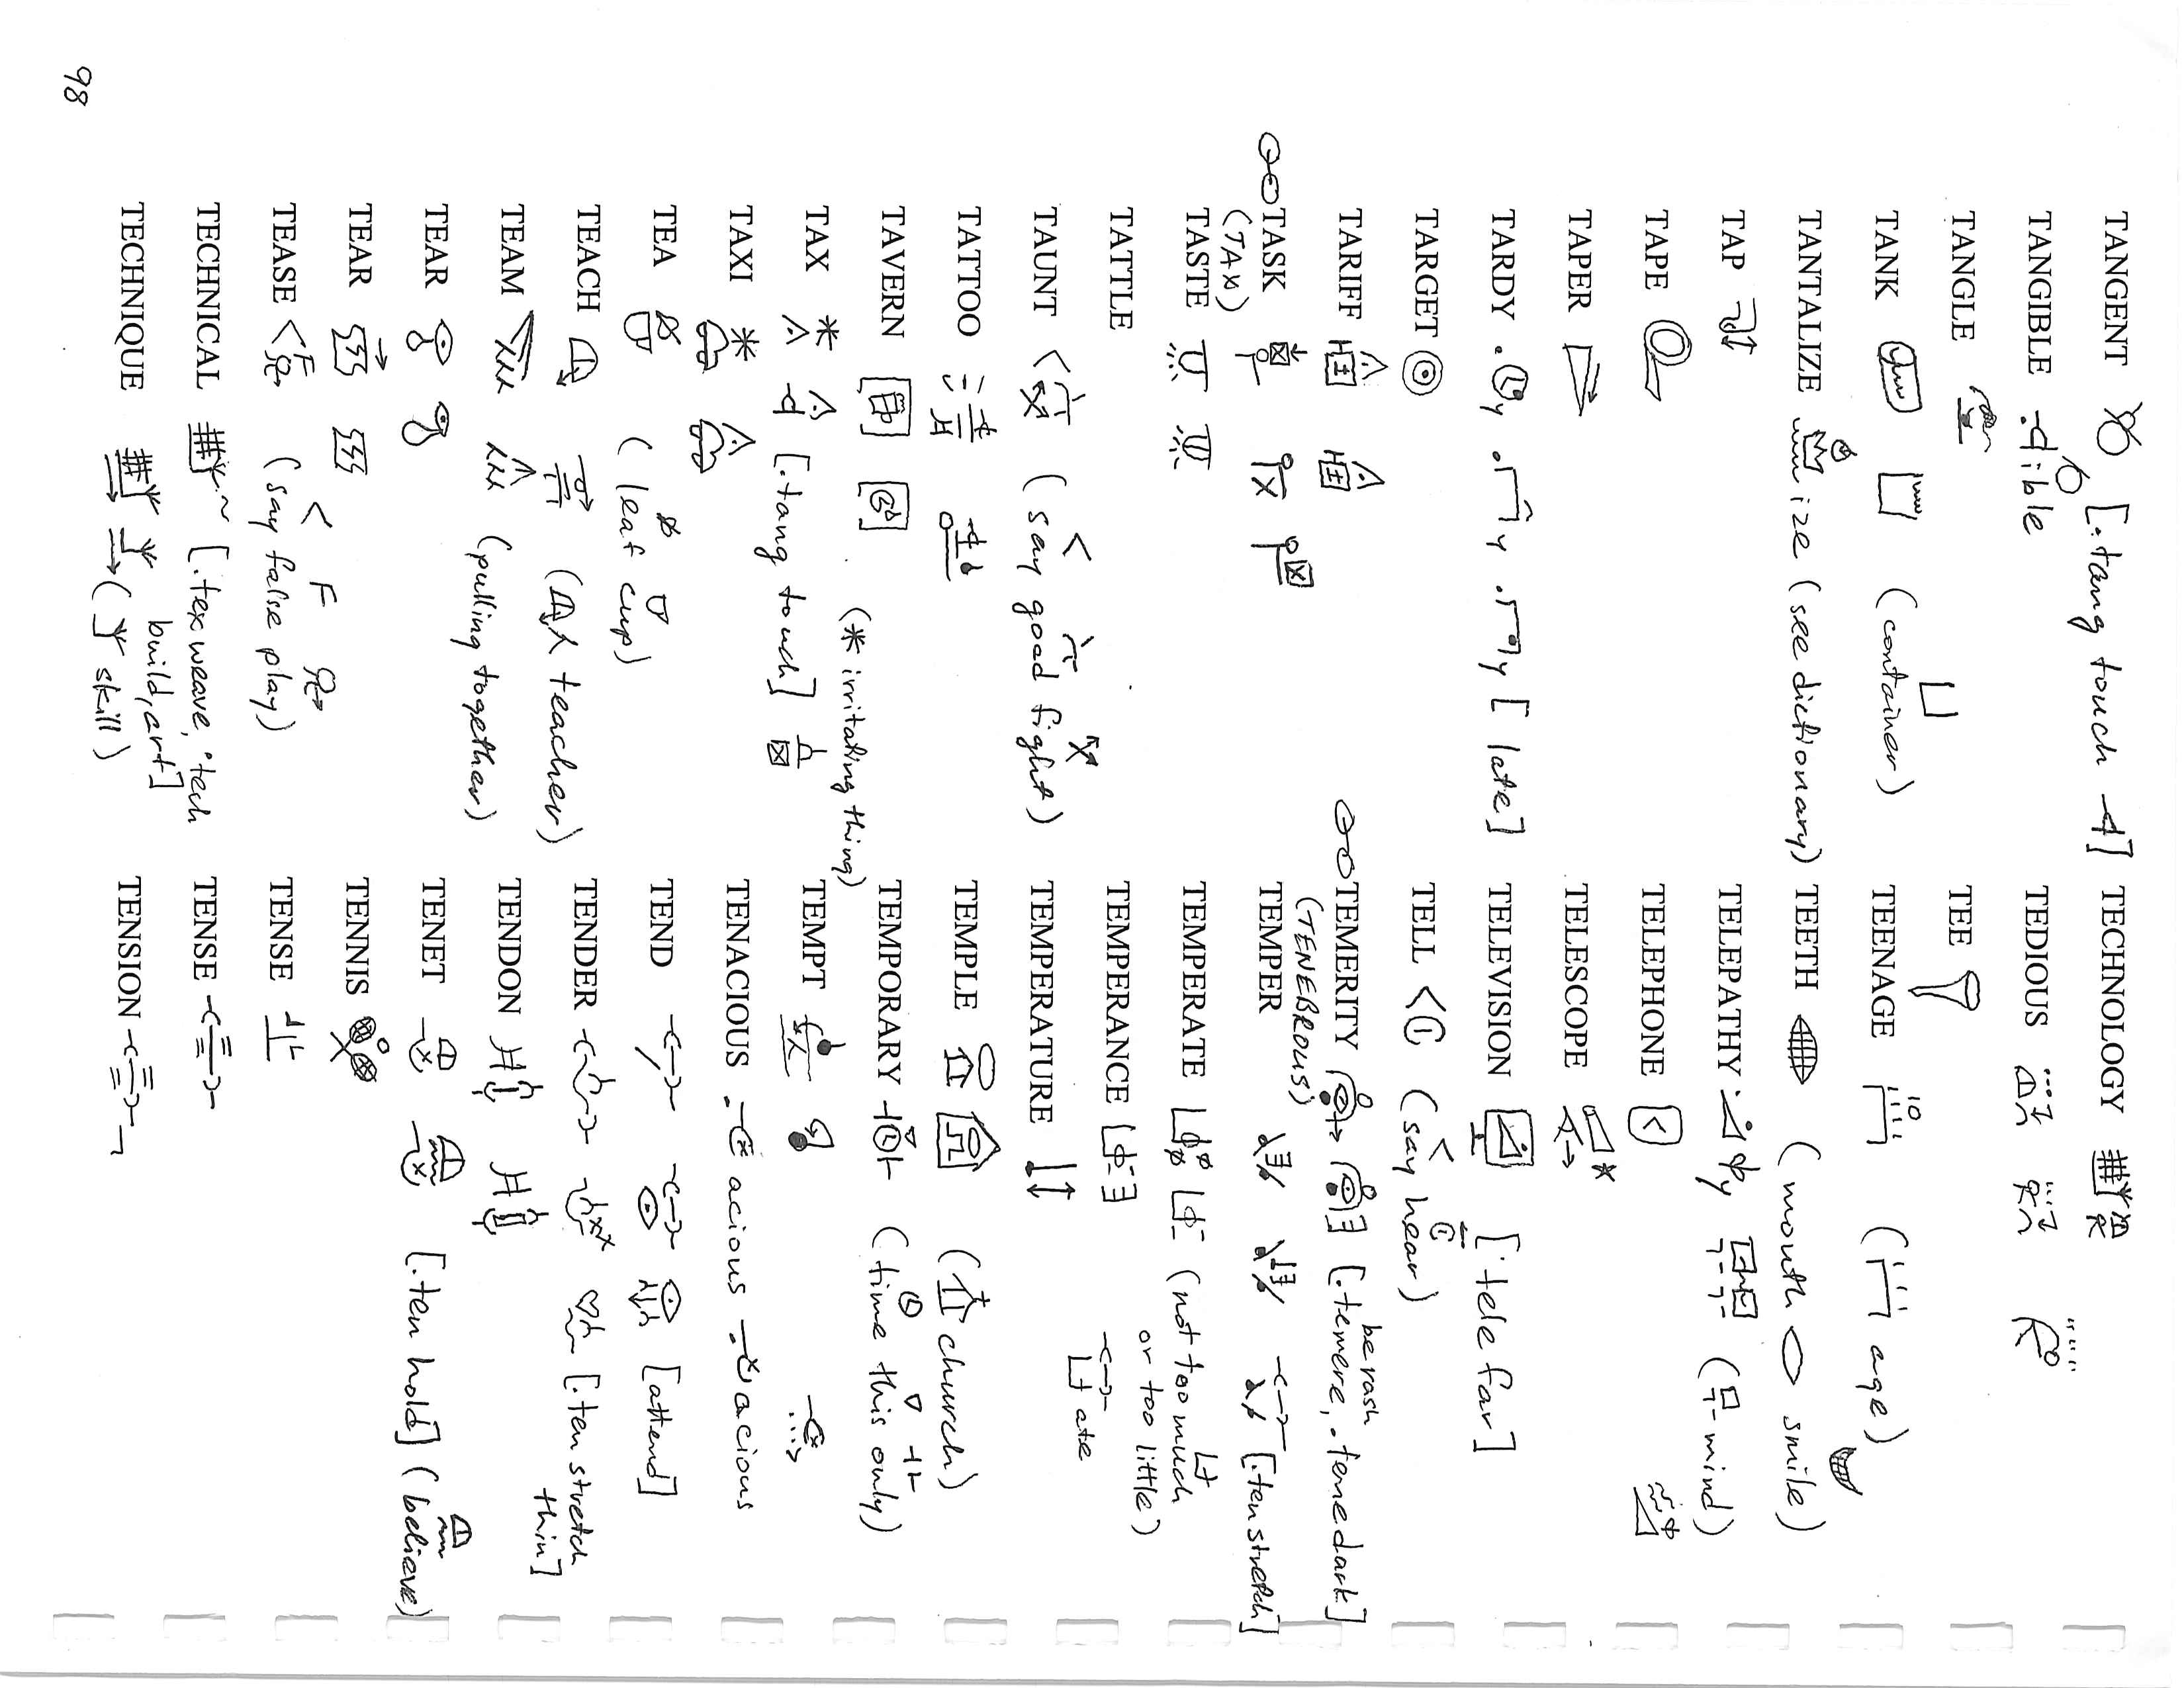 TANGENT [.tang touch]
TANGIBLE .ible
TANGLE
TANK (container)
TANTALIZE ize (see dictionary)
TAP
TAPE
TAPER
TARDY . y . y . y [late]
TARGET
TARIFF
TASK
(TAX)
TASTE
TATTLE
TAUNT (say good fight)
TATTOO
TAVERN
(* irritating thing)
TAX [.tang touch]
TAXI
TEA (leaf cup)
TEACH (teacher)
TEAM (pulling together)
TEAR
TEAR
TEASE F (say false play)
F
TECHNICAL [.tex weave, .tech
build, art]
TECHNIQUE (skill)
TECHNOLOGY
TEDIOUS
TEE
TEENAGE 10 (age)
TEETH (mouth smile)
TELEPATHY y (mind)
TELEPHONE
TELESCOPE
TELEVISION [.tele far]
TELL (say hear)
TEMERITY [.temere, .tene dark]
be rash
(TENEBROUS)
TEMPER [.ten stretch]
TEMPERATE (not too much
or too little)
TEMPERANCE ate
TEMPERATURE
TEMPLE (church)
TEMPORARY (time this only)
TEMPT
TENACIOUS . acious . acious
TEND [attend]
TENDER [.ten stretch
thin]
TENDON
TENET [.ten hold] (believe)
TENNIS
TENSE
TENSE
TENSION
98